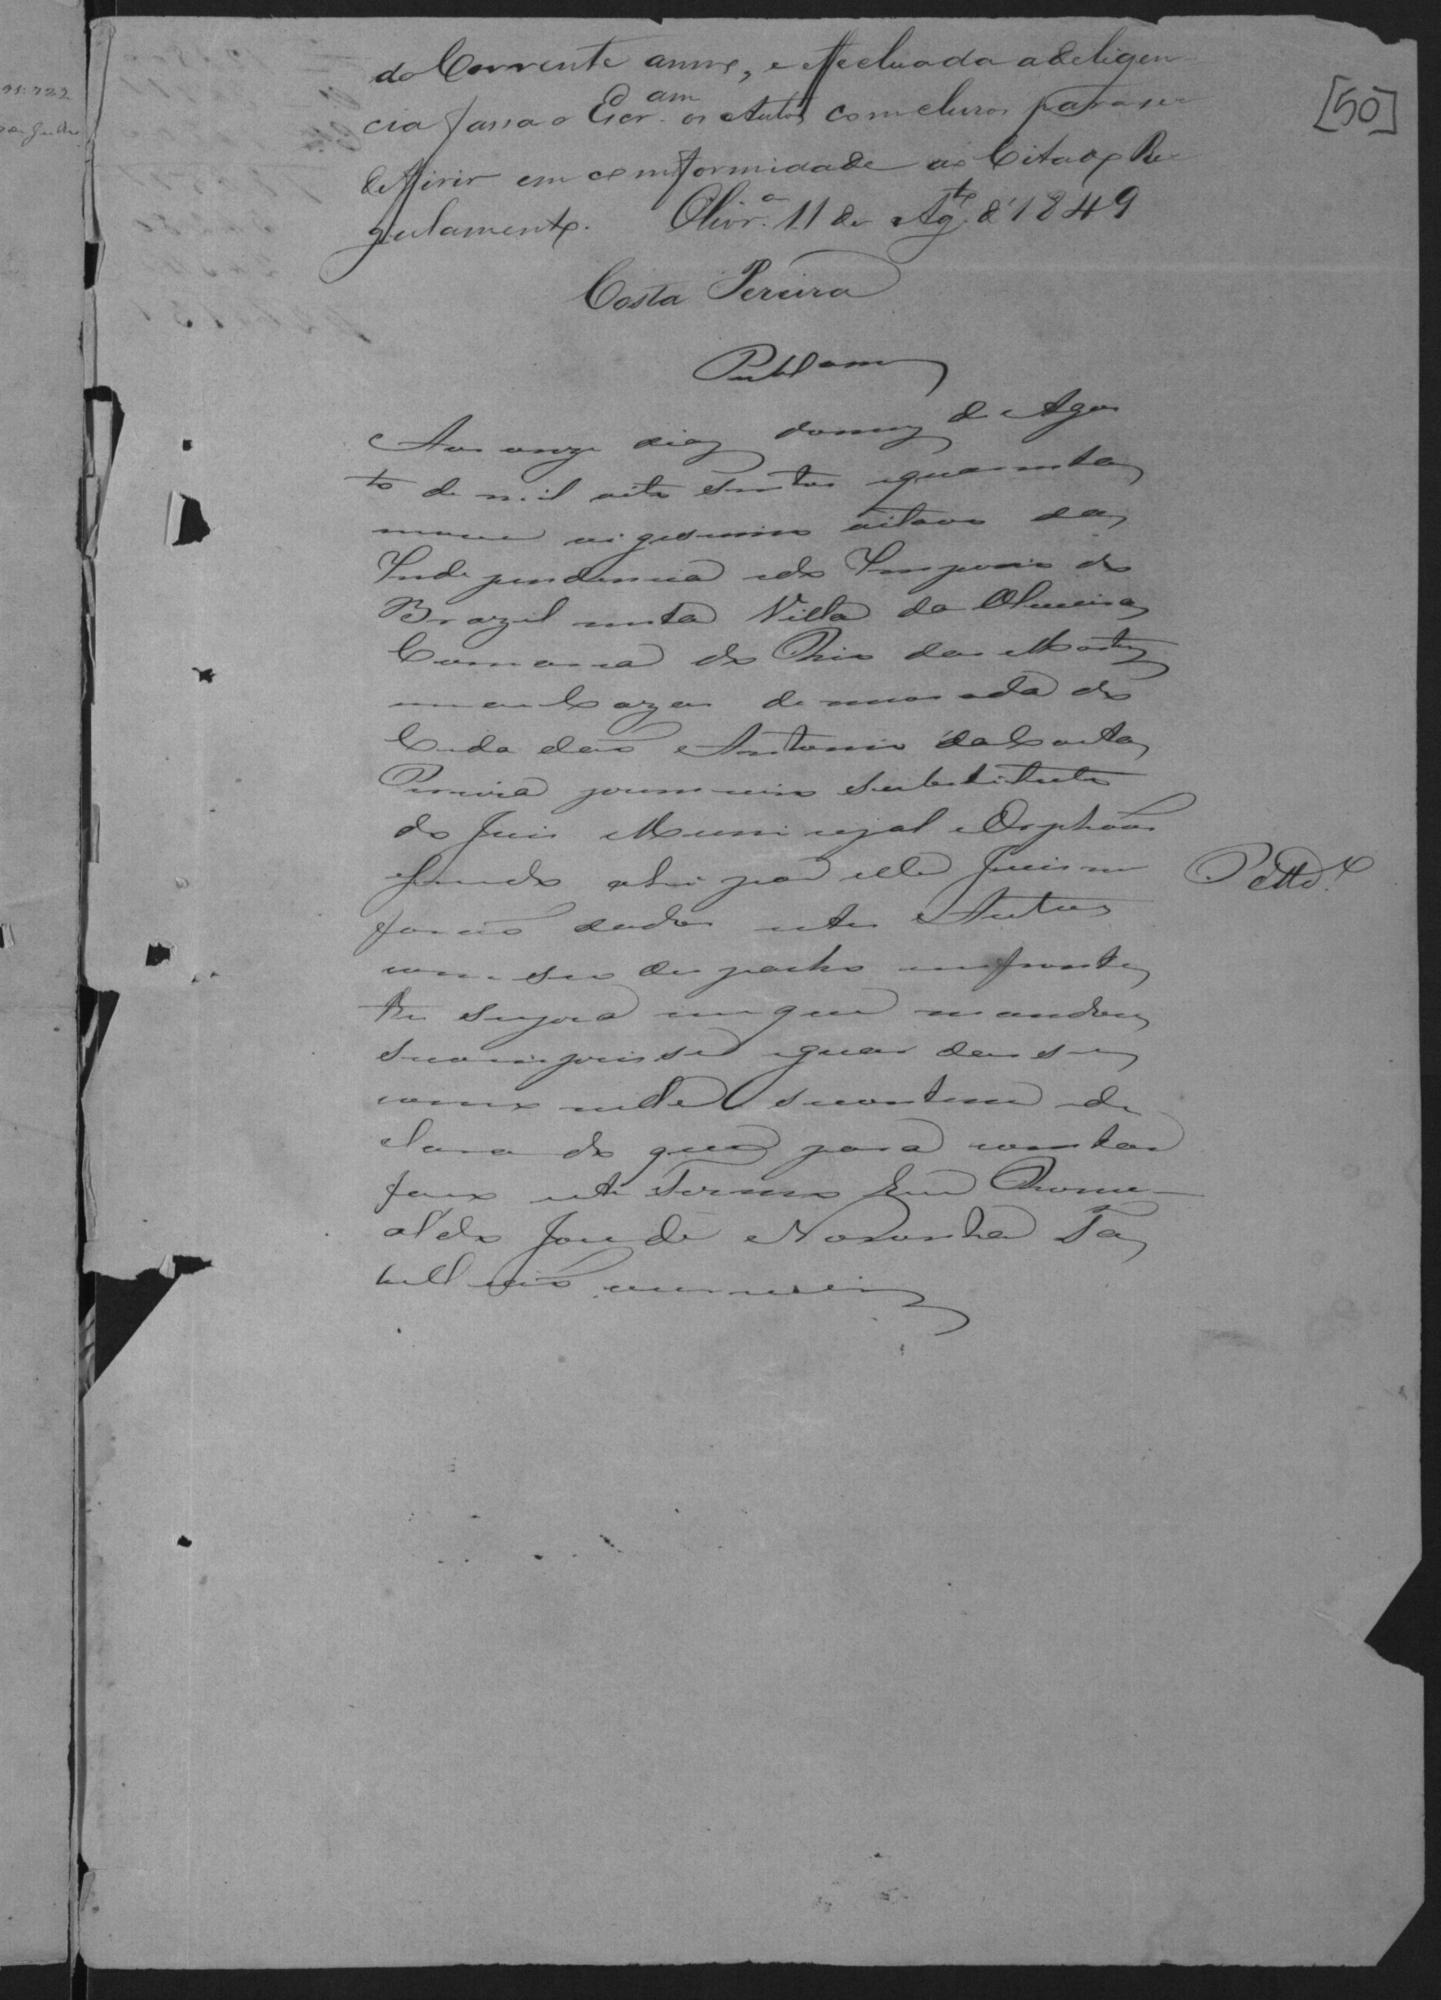 [50]
do Corrente anno, e effectuada a deligen-
cia fassa o Escr.am os Autos comclusos para se
defirir em comformidade ao Citado Re-
gulamento. Olivr.a 11 de Agto. d'1849
Costa Pereira
Publ.am
Aos onze dias do mez de Agos
to de mil oito sentos e quarenta e
nove vigessimo oitavo da
Independencia e do Imperio do
Brazil nesta Villa da Oliveira
Comarca do Rio das Mortes
em as Cazas de morada do
Cidadão Antonio da Costa
Pereira primeiro substituto
do Juis Municipal e Orphãos
sendo ahi por elle Juis me
forão dados estes Autos
com seo despacho
supra em que mandou
se comprisse e guardasse
como nelle se contem e de
clara do que para constar
faço este Termo Eu Romu-
aldo José de Noronha Ta
bellião escrevi